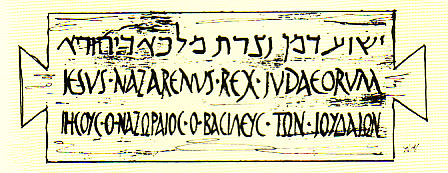 ישוע דמן נצרת מלכא דיהודיא
IESVS·NAZARENVS·REX·IVDAEORVM
ΙΗϹΟΥϹ·Ο·ΝΑΖΩΡΑΙΟϹ·Ο·ΒΑϹΙΛΕΥϹ·ΤΩΝ·ΙΟΥΔΑΙΩΝ